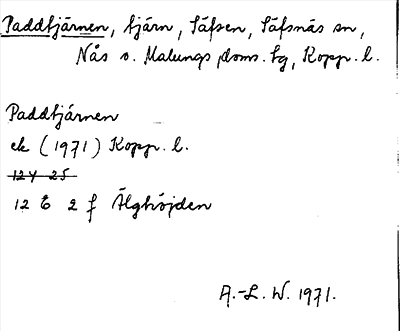 Paddtjärnen, tjärn, Säfsen, Säfsnäs sn,
Nås o. Malungs doms. tg, Kopp. l.
Paddtjärnen
ek (1971) Kopp. l.
12 E 2 f Älghöjden
A.-L. W. 1971.